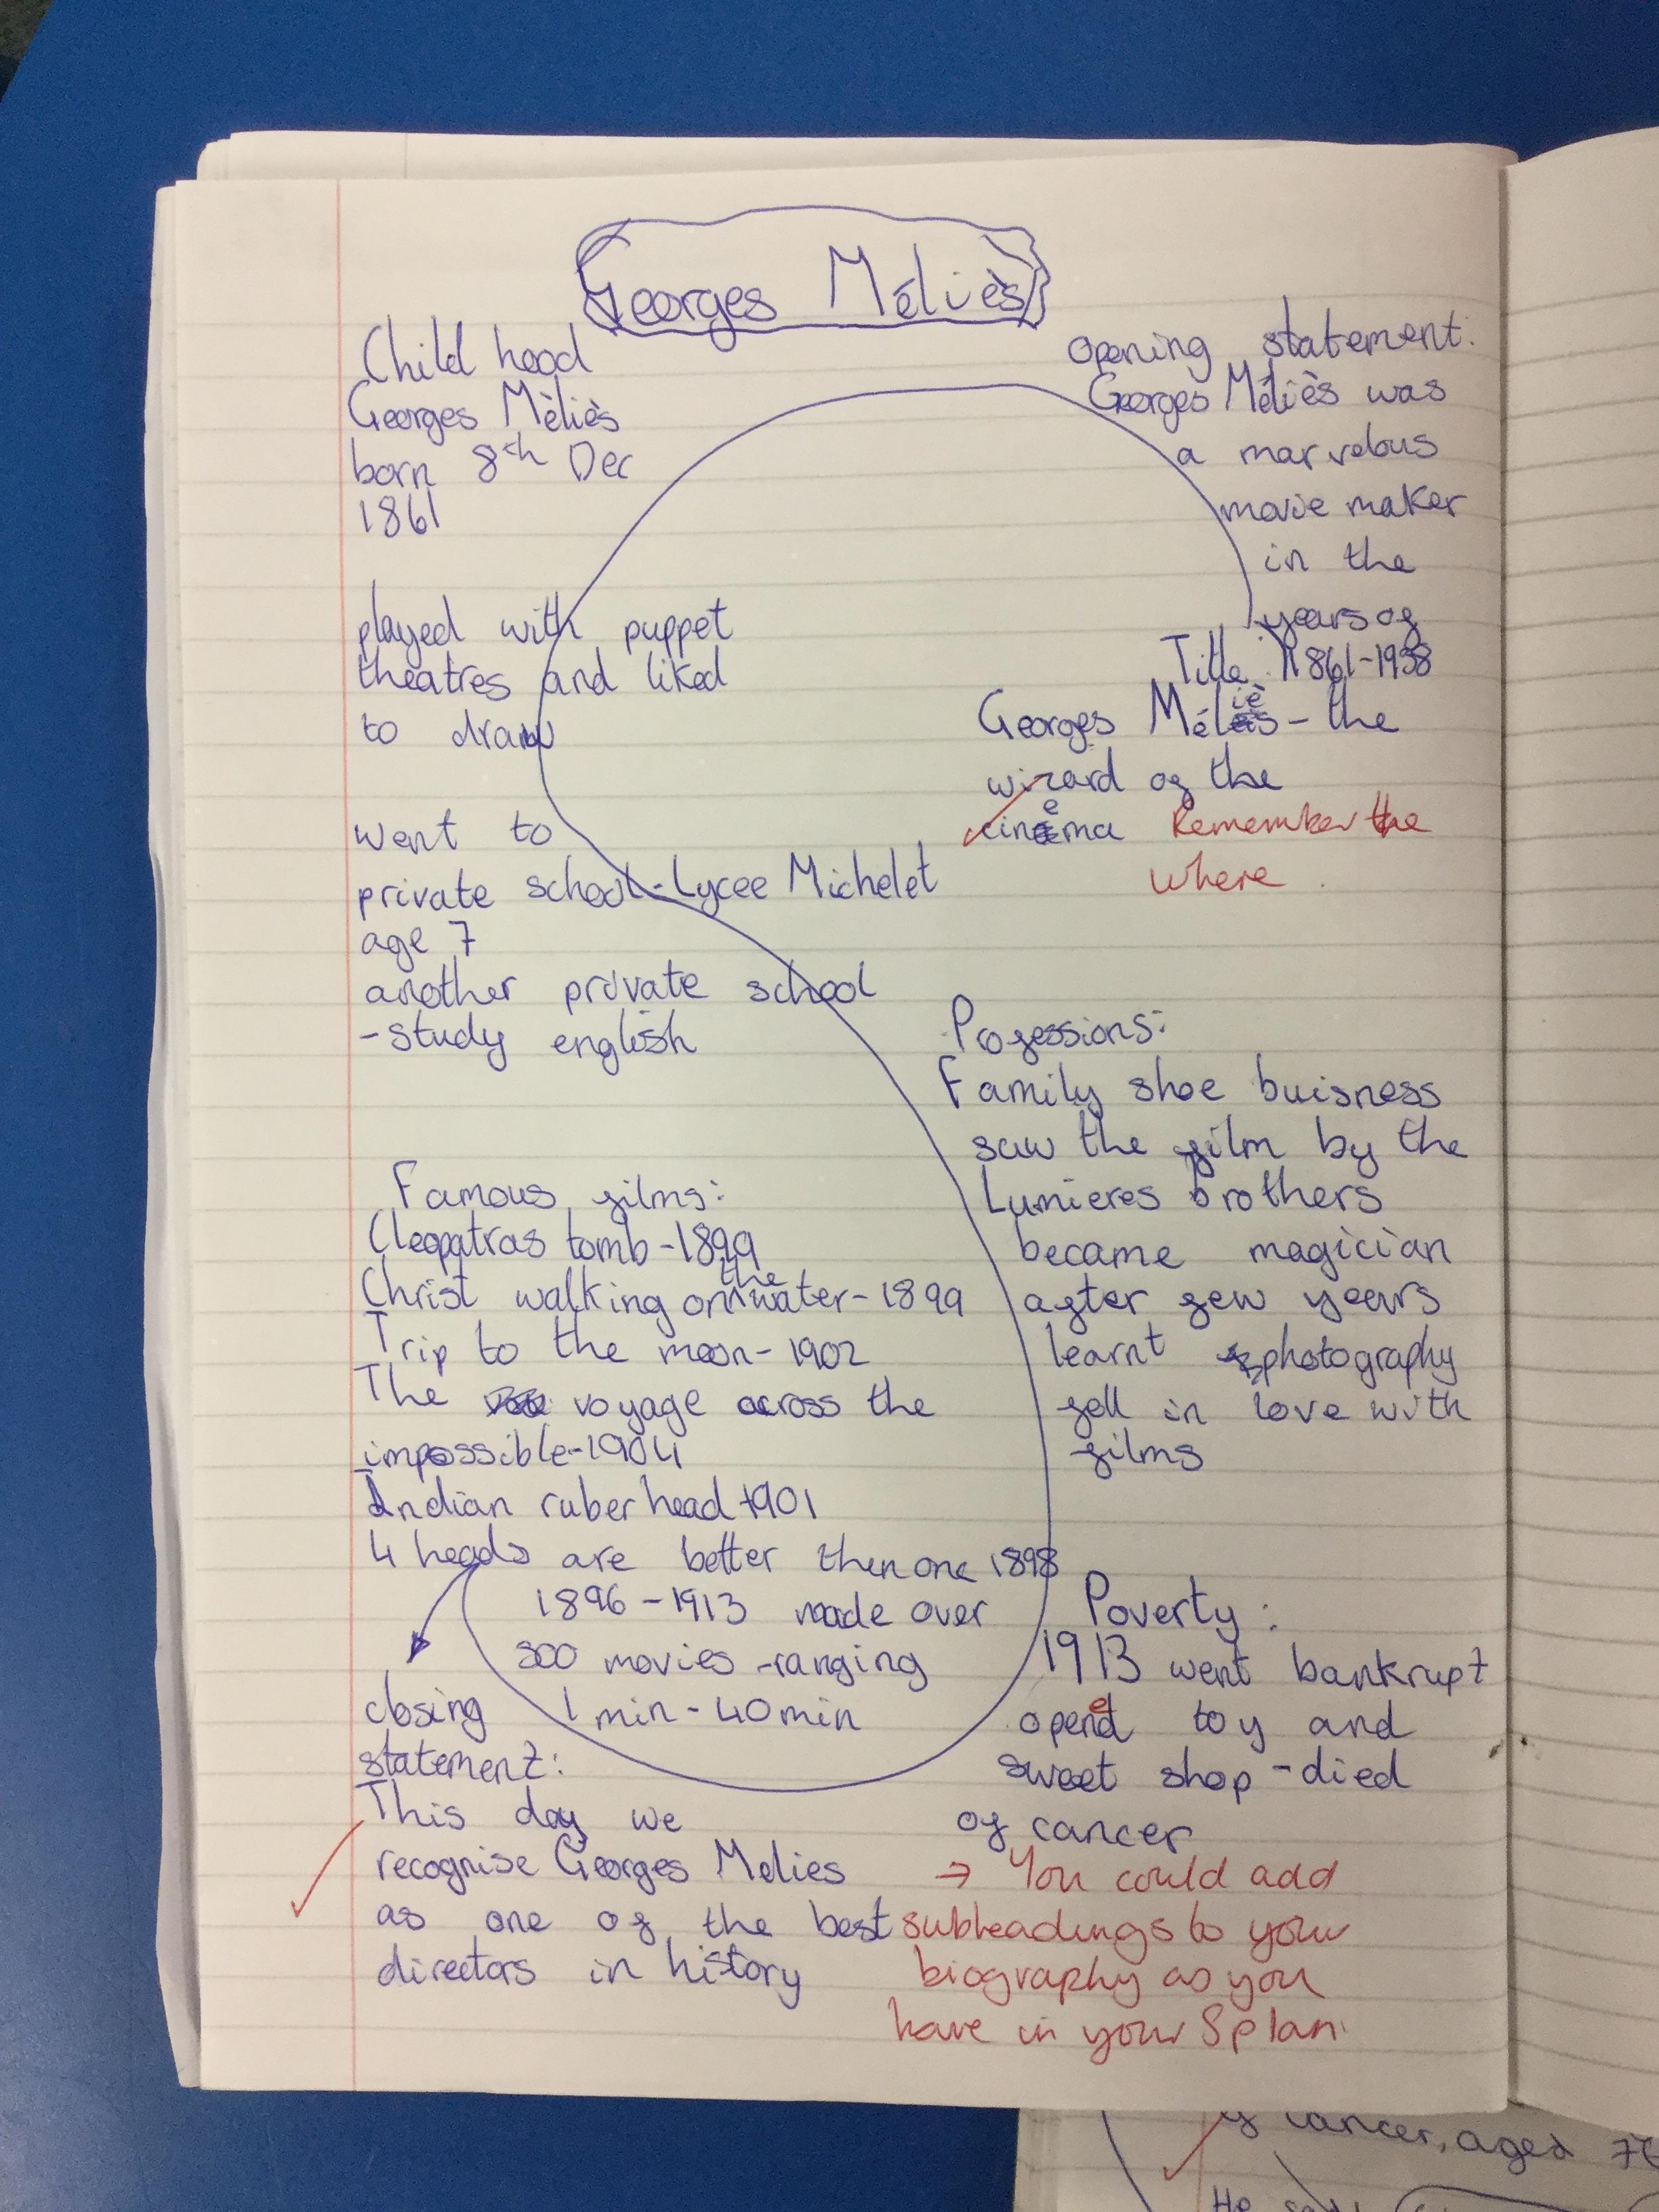 Georges Méliès
Opening statement:
Georges Méliès was
a marvelous
movie maker
in the
years of
1861-1938
Title:
Georges Méliès - the
wizard of the
cinema
Remember the
where.
Child hood
Georges Mèliès
born 8th Dec
1861
played with puppet
theatres and liked
to draw
went to
private school - Lycee Michelet
age 7
another private school
- study english
Professions:
Family shoe buisness
saw the film by the
Lumieres brothers
became magician
after few years
learnt photography
fell in love with
films
Famous films:
Cleopatras tomb - 1899
Christ walking on the water - 1899
Trip to the moon - 1902
The voyage across the
impossible - 1904
Indian ruber head - 1901
4 heads are better then one 1898
1896 - 1913 made over
500 movies - ranging
1 min - 40 min
Poverty:
1913 went bankrupt
opened toy and
sweet shop - died
of cancer
closing
statement:
This day we
recognise Georges Melies
as one of the best
directors in history
→ You could add
subheadings to your
biography as you
have in your S plan.
of cancer, aged 76
He said